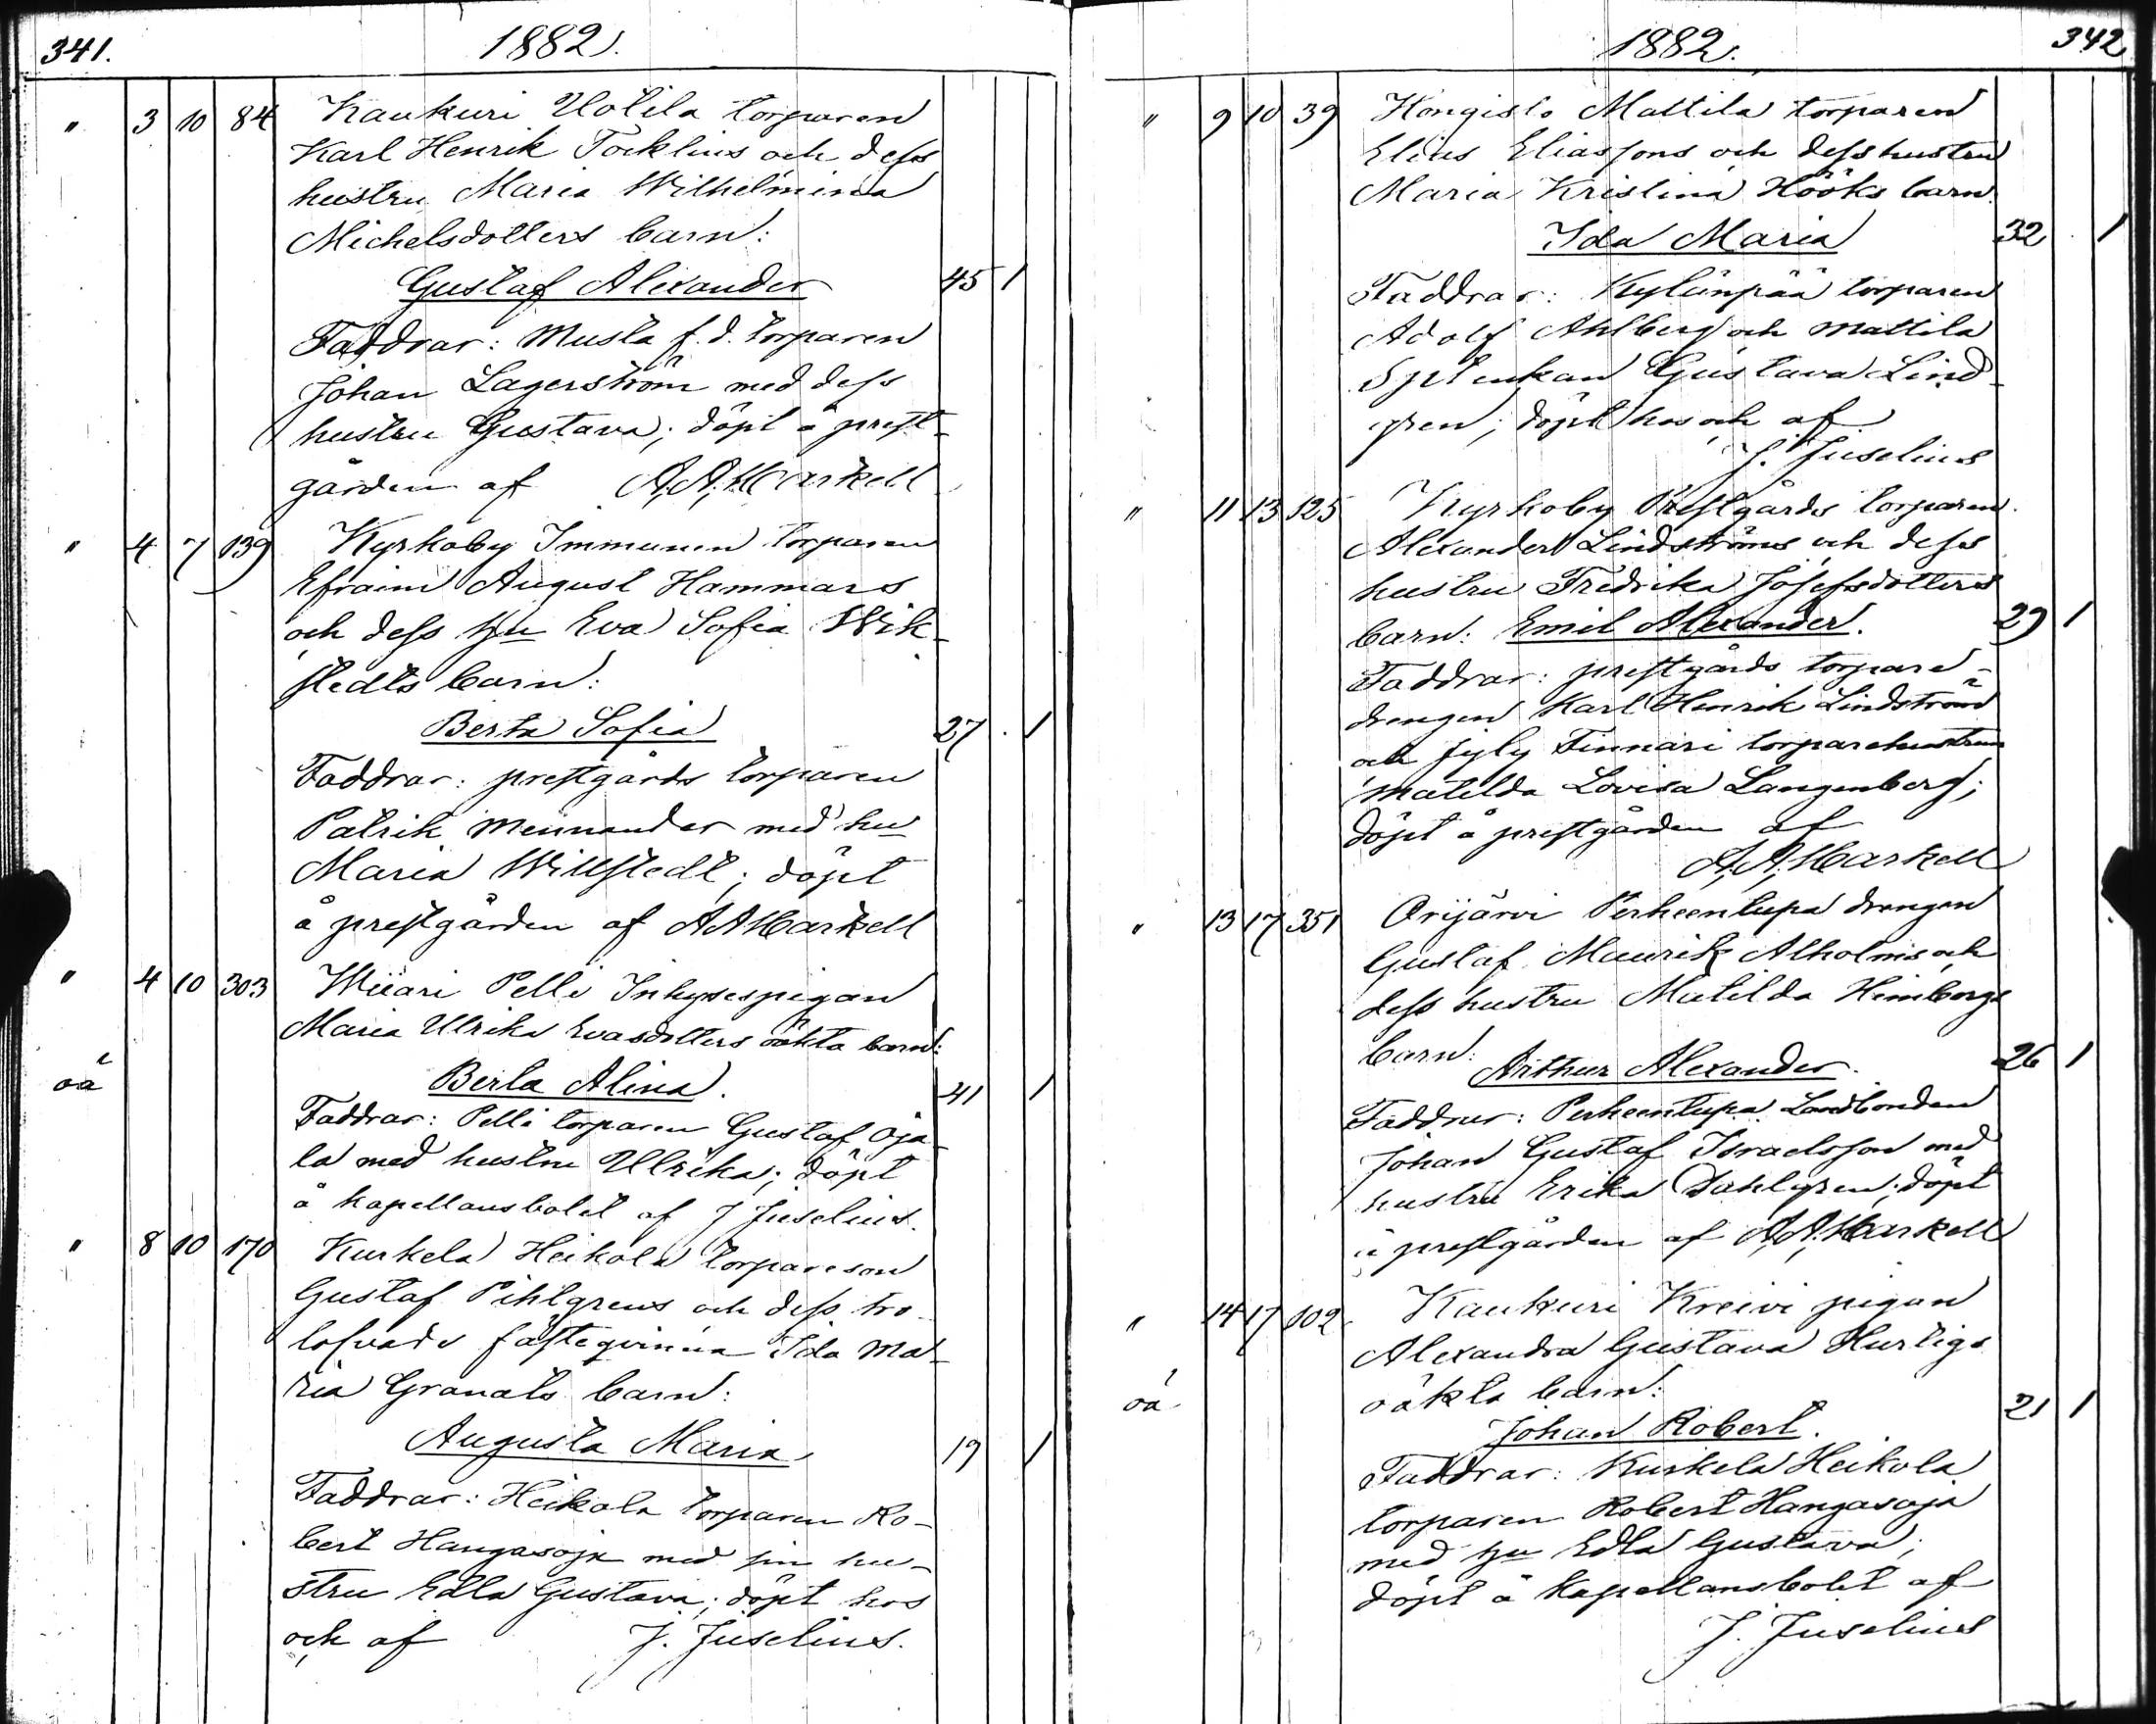 341. 1882.
" 3 10 84 Kaukuri Uotila torparen
Karl Henrik Töcklins och dess
hustru Maria Wilhelmina
Michelsdotters barn:
Gustaf Alexander 45 1
Faddrar: Musta f.d. torparen
Johan Lagerström med dess
hustru Gustava; döpt å prest-
gården af A. A. Markell
" 4 7 139 Kyrkoby Immunen torparen
Efraim August Hammars
och dess hu Eva Sofia Wik-
stedts barn:
Berta Sofia 27 1
Faddrar: prestgårds torparen
Patrik Mennander med hu
Maria Willstedt; döpt
å prestgården af A A Markell
" 4 10 303 Wiiari Pelli Inhysespigan
Maria Ulrika Evasdotters oäkta barn:
oä Berta Alina. 41 1
Faddrar: Pelli torparen Gustaf Oja-
la med hustru Ulrika; döpt
å kapellansbolet af J Juselius.
" 8 10 170 Kurkela Heikola torpareson
Gustaf Pihlgrens och dess tro-
lofvade fästeqvinna Ida Ma-
ria Granats barn:
Augusta Maria 19 1
Faddrar: Heikola torparen Ro-
bert Hangasoja med sin hu-
stru Edla Gustava; döpt hos
och af J. Juselius.
1882. 342
" 9 10 39 Hongisto Mattila torparen
Elias Eliassons och dess hustru
Maria Kristina Hööks barn
Ida Maria 32 1
Faddrar: Kylänpää torparen
Adolf Ahlberg och Mattila
Gustava Lind-
gren; döpt hos och af
J. Juselius
" 11 13 125 Kyrkoby Prestgårds torparen
Alexander Lindströms och dess
hustru Fredrika Josefsdotters
barn: Emil Alexander. 29 1
Faddrar: prestgårds torpare-
drengen Karl Henrik Lindström
och Jyly Finnari torparehustrun
Matilda Lovisa Langenberg;
döpt å prestgården af
A. A. Markell
" 13 17 351 Orijärvi Perheentupa drengen
Gustaf Maurik Alholms och
dess hustru Matilda Himbergs
barn:
Arthur Alexander. 26 1
Faddrar: Perheentupa Landbonden
Johan Gustaf Israelsson med
hustru Erika Dahlgren; döpt
å prestgården af A. A. Markell
" 14 17 102 Kaukuri Kreivi pigan
Alexandra Gustava Hurtigs
oä oäkta barn:
Johan Robert. 21 1
Faddrar: Kurkela Heikola
torparen Robert Hangasoja
med hu Edla Gustava;
döpt å Kapellansbolet af
J. Juselius